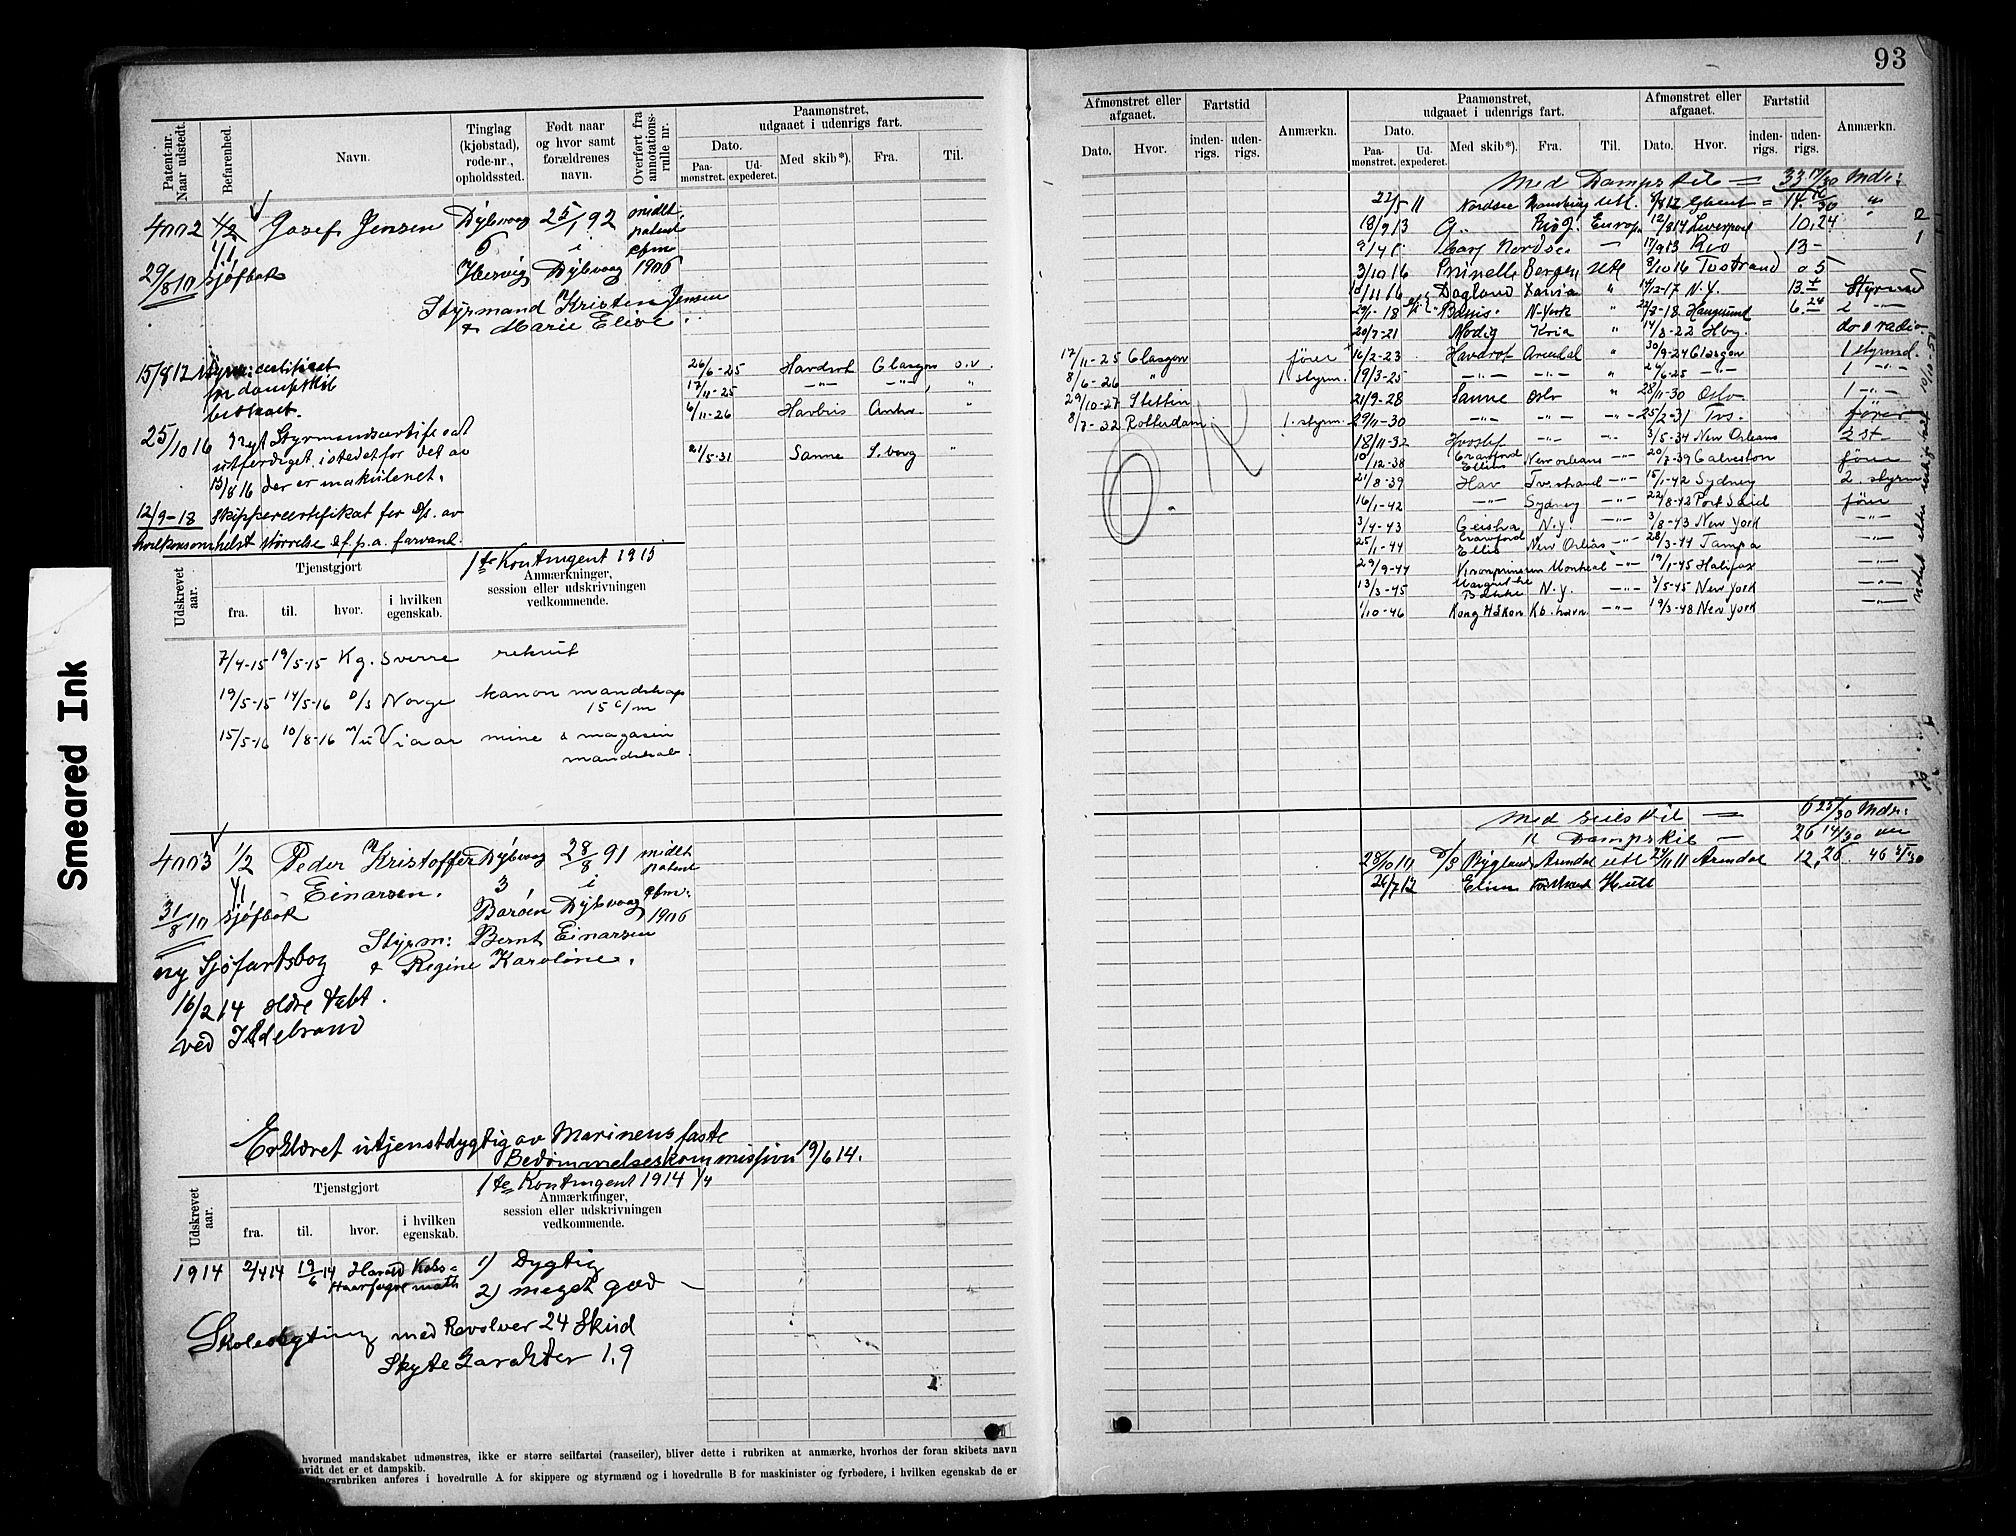 Smeared Ink
93
Patent-nr. Naar udstedt.
Befarenhed.
Navn.
Tinglag (kjøbstad), rode-nr., opholdssted.
Født naar og hvor samt forældrenes navn.
Overført fra annotationsrulle nr.
Paamønstret, udgaaet i udenrigs fart.
Dato.
Paamønstret.
Udexpederet.
Med skib*).
Fra.
Til.
4002 1/2 Josef Jensen Dybvaag 25/1 92 midt.
1/1 5 i patent
29/8 10 sjøfbok Hesvig Dybvaag 1906
Styrmand Kristen Jensen
& Marie Elise.
15/8 12 styrm: certificat
for dampskib
beskaaet.
25/10 16 nyt Styrmandscertifikat
utferdiget istedetfor det av
15/8 16 der er makuleret.
12/9-18 skippercertifikat for D/s. av
hvilkensomhelst størrelse
26/6-25 Havdrot Glasgow o.v.
17/11-25 -"- -"- "
6/11-26 Havbris Antw. "
21/5-31 Sanne S.borg "
1ste Kontingent 1913
Udskrevet aar.
Tjenstgjort
fra.
til.
hvor.
i hvilken egenskab.
Anmærkninger, session eller udskrivningen vedkommende.
7/4-15 19/5-15 Kg. Sverre rekrut
19/5-15 14/5-16 P/s Norge kanon mandskap
15 c/m
15/5-16 10/8-16 m/u Vidar mine & magasin
mandskab.
4003 1/2 Peder Kristoffer Dybvaag 28/8 91 midt
1/1 Einarsen. 3 i patent
31/8 10 sjøfbok Barøen Dybvaag 1906
Styrm: Bernt Einarsen
ny Sjøfartsbog & Regine Karoline.
16/2 14 ældre tabt
ved Ildebrand
Erklæret utjenstdygtig av Marinens faste
Bedømmelseskommission 19/6 14.
1ste Kontingent 1914 1/4
Udskrevet aar.
Tjenstgjort
fra.
til.
hvor.
i hvilken egenskab.
Anmærkninger, session eller udskrivningen vedkommende.
1914 2/4 14 19/6 14 Harald Koks=
Haarfagre math
1) Dygtig
2) meget god
Skoleskytning med Revolver 24 Skud
Skyte Karakter 1,9
hvormed mandskabet udmønstres, ikke er større seilfartøi (raaseiler), bliver dette i rubriken at anmærke, hvorhos der foran skibets navn
vidt det er et dampskib.
ingsrubriken anføres i hovedrulle A for skippere og styrmænd og i hovedrulle B for maskinister og fyrbødere, i hvilken egenskab de er
Afmønstret eller afgaaet.
Dato.
Hvor.
Fartstid
indenrigs.
udenrigs.
Anmærkn.
Paamønstret, udgaaet i udenrigs fart.
Dato.
Paamønstret.
Udexpederet.
Med skib*).
Fra.
Til.
Afmønstret eller afgaaet.
Dato.
Hvor.
Fartstid
indenrigs.
udenrigs.
Anmærkn.
17/11-25 Glasgow fører
8/6-26 " 1 styrm.
29/10-27 Stettin
8/7-32 Rotterdam 1. styrm.
Med Dampskib = 33 17/30 Mdr:
22/5 11 Nordsee Hamburg Utl. Ghent = 14.
18/9 13 Europ 12/8 14 Liverpool 10.24
Nordsee 17/9 13 Rio 13 -
3/10 16 Prunelle Bergen Utl 8/10 16 Tvstrand 5
10/11 16 Dagland " 14/12-17 N.Y. Styrmd
29/1-18 N-York " 22/7-18 Haugesund 6.24 2 -"-
20/7-21 Modig Kria " 14/3-22 Hvg.
16/2-23 Havdrot Arendal " 30/9-24 Glasgow 1 styrmd.
19/3-25 -"- -"- " 26/6-25 -"- 1 -"-
21/9-28 Sanne Oslo " 28/11-30 Oslo 1 -"-
29/11-30 -"- -"- " 25/2-31 Tvs. fører
18/11-32 -"- 3/5-34 New Orleans 2 st.
10/12-38 Crawford Ellis New Orleans -"- 20/7-39 Galveston fører
21/8-39 Hav Tvestrand -"- 15/1-42 Sydney 2. styrm
16/1-42 -"- Sydney -"- 22/8-42 Port Said fører
3/4-43 Geisha N.Y. -"- 3/8-43 New York -"-
25/1-44 Crawford Ellis New Orleans -"- 28/3-44 Tampa -"-
29/9-44 Kronprinsen Montreal -"- 19/1-45 Halifax -"-
13/3-45 Margrethe Bakke N.Y. -"- 3/5-45 New York -"-
1/10-46 Kong Håkon Kb.havn -"- 19/3-48 New York -"-
Med seilskib = 6 25/30 Mdr:
" Dampskib - 26 14/30
28/10 10 D/S Bygland Arendal utl 24/11 11 Arendal 12,26.
26/7 12